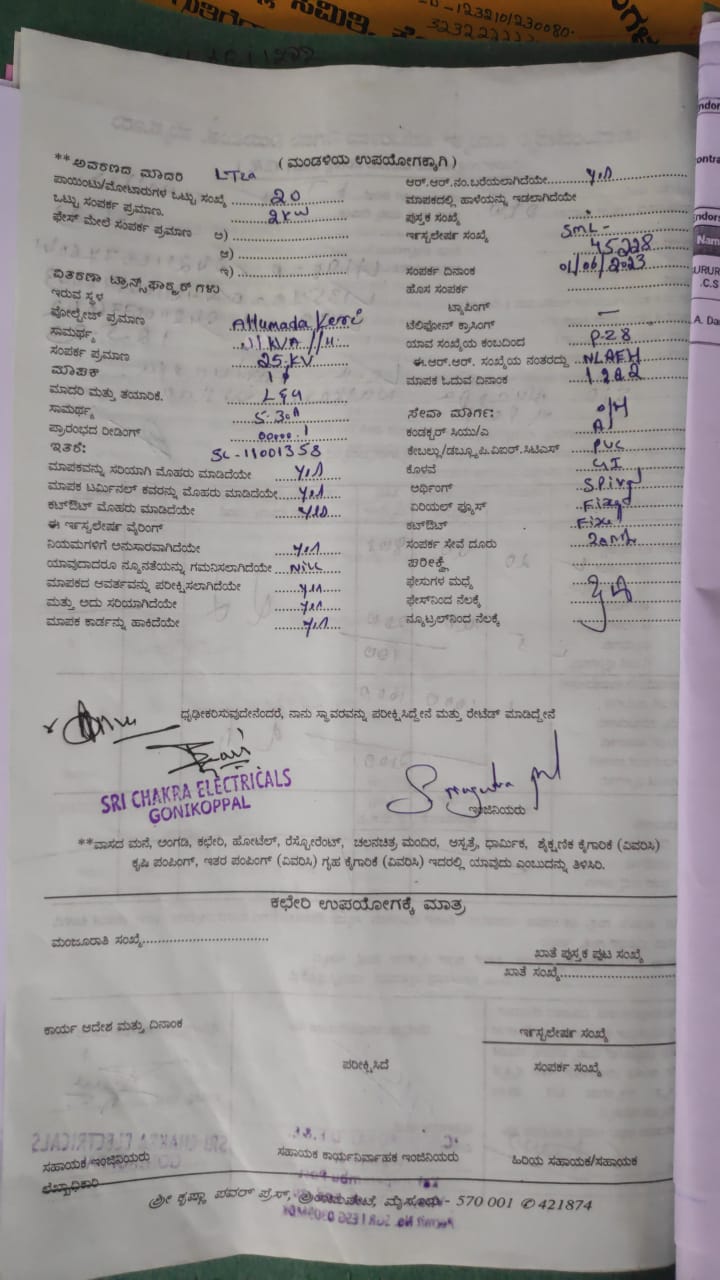 -123210/230080.
( ಮಂಡಳಿಯ ಉಪಯೋಗಕ್ಕಾಗಿ )
**ಆವರಣದ ಮಾದರಿ LT2a
ಪಾಯಿಂಟು/ಮೋಟಾರುಗಳ ಒಟ್ಟು ಸಂಖ್ಯೆ 20
ಒಟ್ಟು ಸಂಪರ್ಕ ಪ್ರಮಾಣ. 2kw
ಫೇಸ್ ಮೇಲೆ ಸಂಪರ್ಕ ಪ್ರಮಾಣ ಅ)
ಆ)
ಇ)
ವಿತರಣಾ ಟ್ರಾನ್ಸ್‌ಫಾರ್ಮರ್‌ಗಳು
ಇರುವ ಸ್ಥಳ
ವೋಲ್ಟೇಜ್ ಪ್ರಮಾಣ
ಸಾಮರ್ಥ್ಯ 11 KVA
ಸಂಪರ್ಕ ಪ್ರಮಾಣ 25-KV
ಮಾಪಕ
ಮಾದರಿ ಮತ್ತು ತಯಾರಿಕೆ. L&G
ಸಾಮರ್ಥ್ಯ 5-30A
ಪ್ರಾರಂಭದ ರೀಡಿಂಗ್ 00000.1
ಇತರೆ: SL-11001358
ಮಾಪಕವನ್ನು ಸರಿಯಾಗಿ ಮೊಹರು ಮಾಡಿದೆಯೇ
ಮಾಪಕ ಟರ್ಮಿನಲ್ ಕವರನ್ನು ಮೊಹರು ಮಾಡಿದೆಯೇ
ಕಟ್‌ಔಟ್ ಮೊಹರು ಮಾಡಿದೆಯೇ
ಈ ಇನ್ಸ್ಟಲೇಷನ್ ವೈರಿಂಗ್
ನಿಯಮಗಳಿಗೆ ಅನುಸಾರವಾಗಿದೆಯೇ
ಯಾವುದಾದರೂ ನ್ಯೂನತೆಯನ್ನು ಗಮನಿಸಲಾಗಿದೆಯೇ NiLL
ಮಾಪಕದ ಆವರ್ತವನ್ನು ಪರೀಕ್ಷಿಸಲಾಗಿದೆಯೇ
ಮತ್ತು ಅದು ಸರಿಯಾಗಿದೆಯೇ
ಮಾಪಕ ಕಾರ್ಡನ್ನು ಹಾಕಿದೆಯೇ
ಆರ್.ಆರ್.ನಂ.ಬರೆಯಲಾಗಿದೆಯೇ
ಮಾಪಕದಲ್ಲಿ ಹಾಳೆಯನ್ನು ಇಡಲಾಗಿದೆಯೇ
ಪುಸ್ತಕ ಸಂಖ್ಯೆ
ಇನ್ಸ್ಟಲೇಷನ್ ಸಂಖ್ಯೆ SML-
45228
ಸಂಪರ್ಕ ದಿನಾಂಕ 01/06/2023
ಹೊಸ ಸಂಪರ್ಕ
ಟ್ಯಾಪಿಂಗ್
ಟೆಲಿಫೋನ್ ಕ್ರಾಸಿಂಗ್ —
ಯಾವ ಸಂಖ್ಯೆಯ ಕಂಬದಿಂದ P-28
ಈ.ಆರ್.ಆರ್. ಸಂಖ್ಯೆಯ ನಂತರದ್ದು NLAEH
ಮಾಪಕ ಓದುವ ದಿನಾಂಕ 1222
ಸೇವಾ ಮಾರ್ಗ: O/H
ಕಂಡಕ್ಟರ್ ಸಿಯು/ಎ A
ಕೇಬಲ್ಲು/ಡಬ್ಲ್ಯೂ.ಪಿ.ಐಆರ್.ಸಿಟಿಎಸ್ PVC
ಕೊಳವೆ GI
ಅರ್ಥಿಂಗ್ Spiral
ಏರಿಯಲ್ ಫ್ಯೂಸ್ Fixed
ಕಟ್‌ಔಟ್
ಸಂಪರ್ಕ ಸೇವೆ ದೂರು
ಪರೀಕ್ಷೆ
ಫೇಸುಗಳ ಮಧ್ಯೆ
ಫೇಸ್‌ನಿಂದ ನೆಲಕ್ಕೆ
ನ್ಯೂಟ್ರಲ್‌ನಿಂದ ನೆಲಕ್ಕೆ
ಧೃಢೀಕರಿಸುವುದೇನೆಂದರೆ, ನಾನು ಸ್ಥಾವರವನ್ನು ಪರೀಕ್ಷಿಸಿದ್ದೇನೆ ಮತ್ತು ರೇಟೆಡ್ ಮಾಡಿದ್ದೇನೆ
SRI CHAKRA ELECTRICALS
GONIKOPPAL
ಇಂಜಿನಿಯರು
**ವಾಸದ ಮನೆ, ಅಂಗಡಿ, ಕಛೇರಿ, ಹೋಟೆಲ್, ರೆಸ್ಟೋರೆಂಟ್, ಚಲನಚಿತ್ರ ಮಂದಿರ, ಆಸ್ಪತ್ರೆ, ಧಾರ್ಮಿಕ, ಶೈಕ್ಷಣಿಕ ಕೈಗಾರಿಕೆ (ವಿವರಿಸಿ)
ಕೃಷಿ ಪಂಪಿಂಗ್, ಇತರ ಪಂಪಿಂಗ್ (ವಿವರಿಸಿ) ಗೃಹ ಕೈಗಾರಿಕೆ (ವಿವರಿಸಿ) ಇದರಲ್ಲಿ ಯಾವುದು ಎಂಬುದನ್ನು ತಿಳಿಸಿರಿ.
ಕಛೇರಿ ಉಪಯೋಗಕ್ಕೆ ಮಾತ್ರ
ಮಂಜೂರಾತಿ ಸಂಖ್ಯೆ
ಖಾತೆ ಪುಸ್ತಕ ಪುಟ ಸಂಖ್ಯೆ
ಖಾತೆ ಸಂಖ್ಯೆ
ಕಾರ್ಯ ಆದೇಶ ಮತ್ತು ದಿನಾಂಕ
ಇನ್ಸ್ಟಲೇಷನ್ ಸಂಖ್ಯೆ
ಪರೀಕ್ಷಿಸಿದೆ
ಸಂಪರ್ಕ ಸಂಖ್ಯೆ
ಸಹಾಯಕ ಇಂಜಿನಿಯರು
ಲೆಖ್ಖಾಧಿಕಾರಿ
ಸಹಾಯಕ ಕಾರ್ಯನಿರ್ವಾಹಕ ಇಂಜಿನಿಯರು
ಹಿರಿಯ ಸಹಾಯಕ/ಸಹಾಯಕ
ಶ್ರೀ ಕೃಷ್ಣಾ ಪವರ್ ಪ್ರೆಸ್, ಶ್ರೀರಾಮಪೇಟೆ, ಮೈಸೂರು - 570 001 ✆ 421874